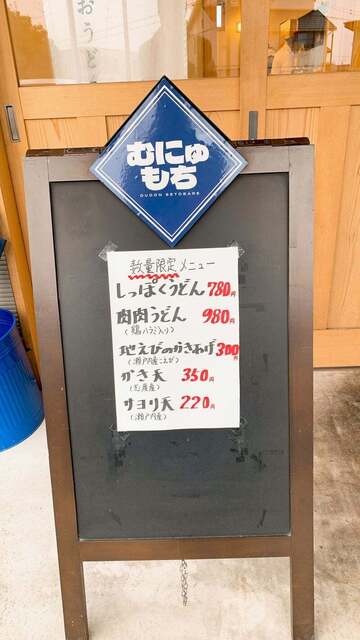 おうどん
むにゅ
もち
UDODN SETOKAZE
数量限定 メニュー
しっぽくうどん 780円
肉肉うどん 980円
(鶏ハラミ入り)
地えびのかきあげ 300円
(瀬戸内産こえび)
かき天 350円
サヨリ天 220円
(瀬戸内産)